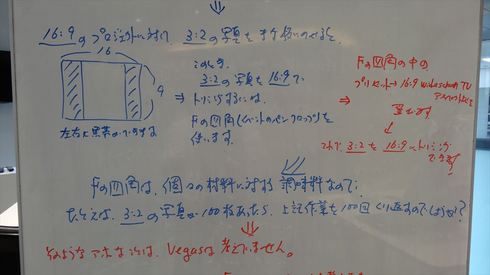 16:9のプロジェクトに対して 3:2の写真を
16
9
左右に黒帯ができます
このとき
3:2の写真を 16:9で
⇒ トリミングするには
Fの四角(イベントのパン/クロップ)を
使います。
⇒
Fの四角の中の
プリセット→16:9 widescreen TV
アスペクト比を
選びます
これで 3:2を 16:9にトリミング
できます!
Fの四角は、個々の材料に対する 調味料なので
たとえば、3:2の写真が100枚あったら、上記作業を100回くり返すのでしょうか?
そのようなアホなことは、Vegasは考えていません。